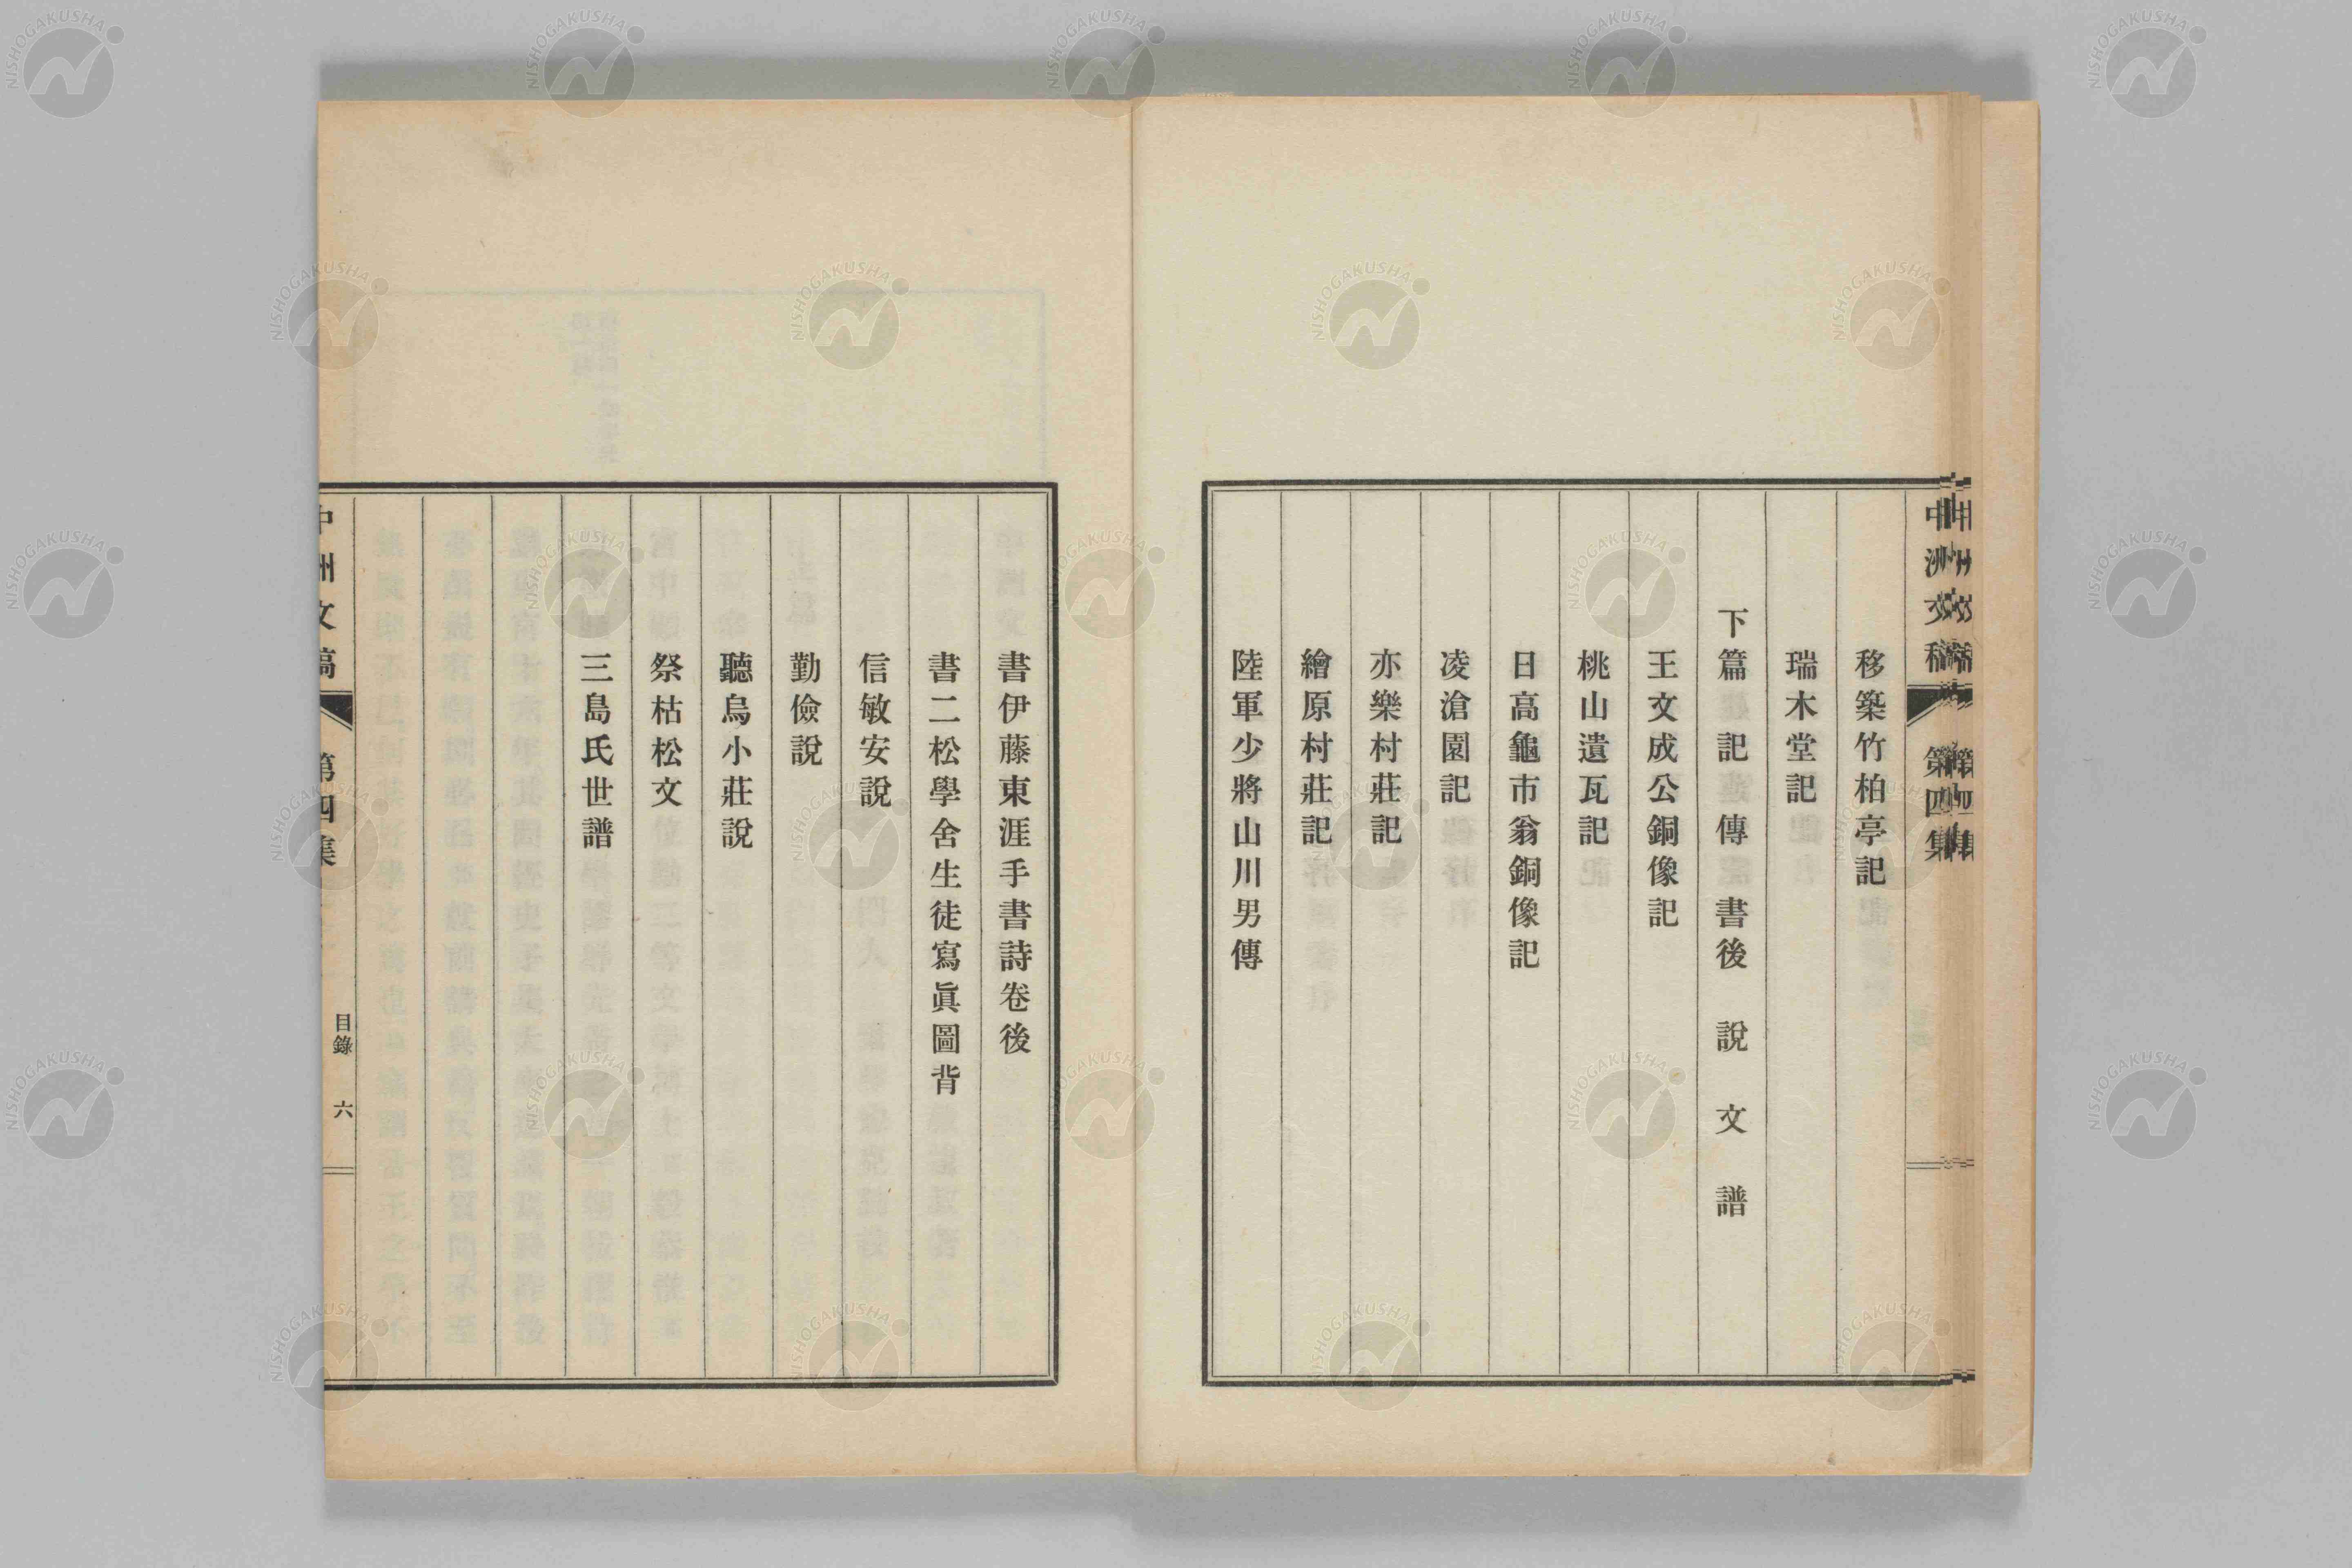 中洲文稿 第四集
移築竹柏亭記
瑞木堂記
下篇 記 傳 書後 說 文 譜
王文成公銅像記
桃山遺瓦記
日高龜市翁銅像記
凌滄園記
亦樂村莊記
繪原村莊記
陸軍少將山川男傳
書伊藤東涯手書詩卷後
書二松學舍生徒寫眞圖背
信敏安說
勤儉說
聽烏小莊說
祭枯松文
三島氏世譜
中洲文稿 第四集 目錄 六
NISHOGAKUSHA